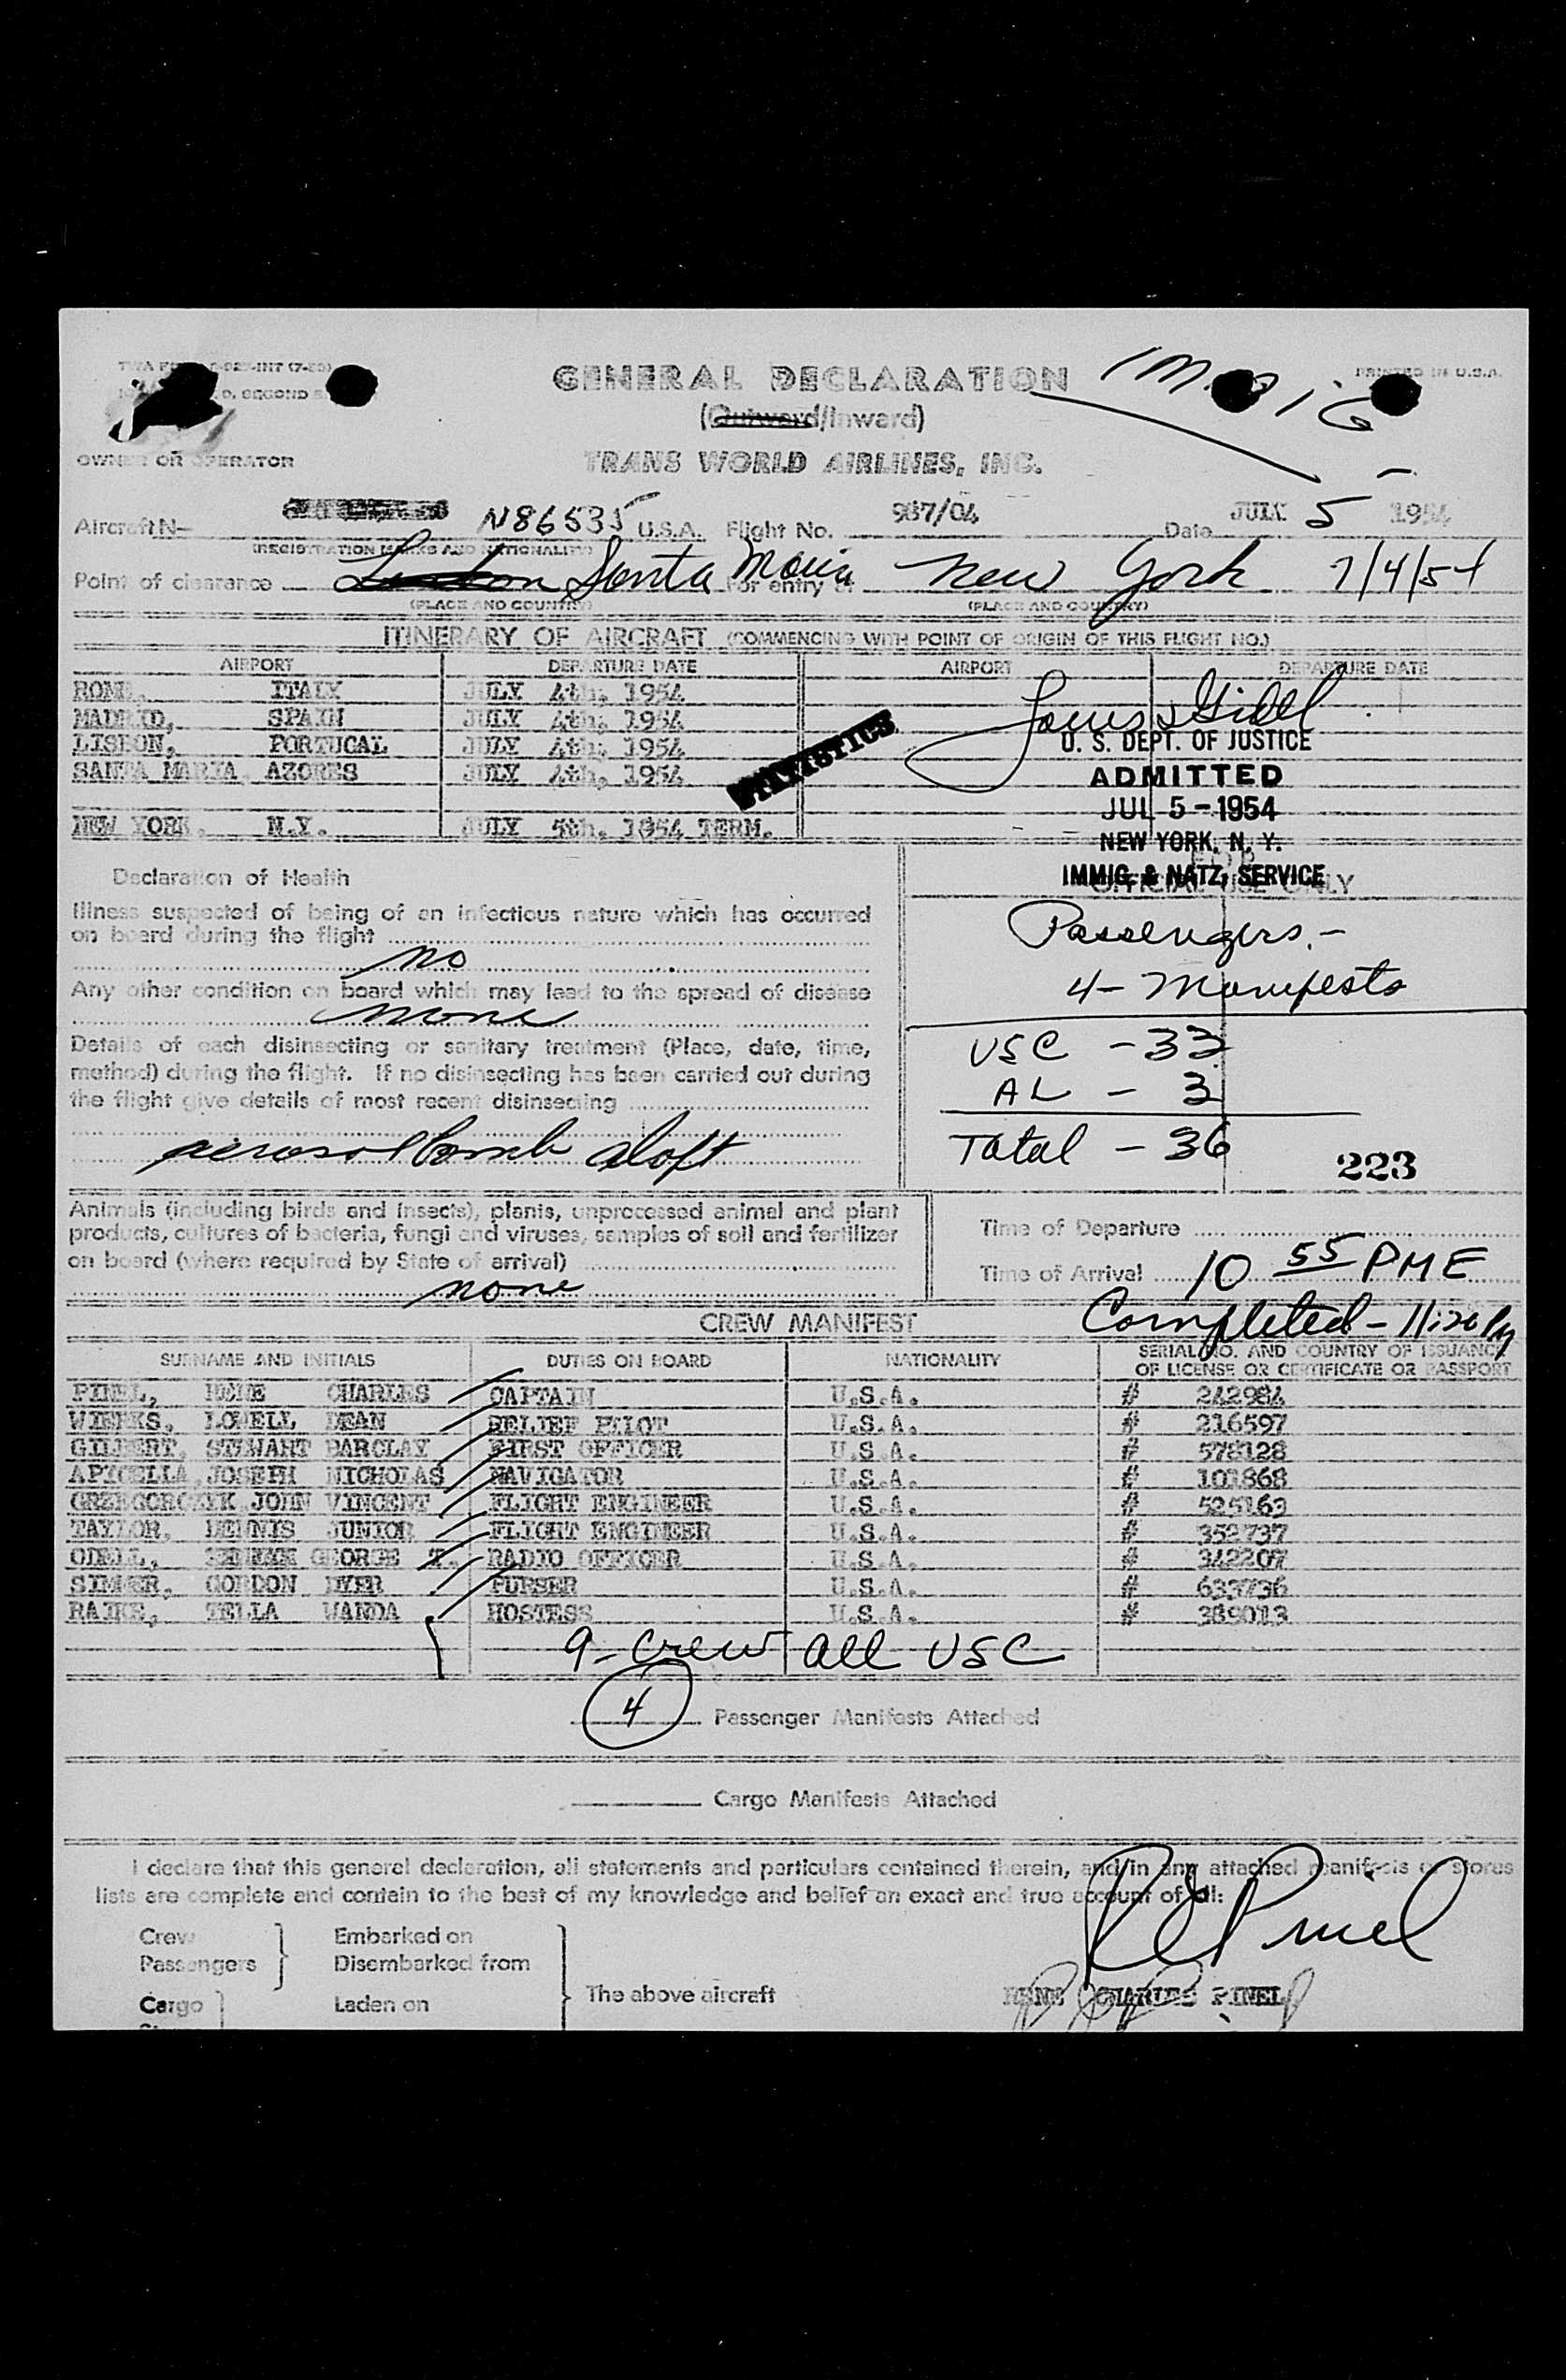 GENERAL DECLARATION
(Outward/Inward)
PRINTED IN U.S.A.
OWNER OR OPERATOR
TRANS WORLD AIRLINES, INC.
Aircraft N- N86535 U.S.A. Flight No. 987/04 Date JULY 5 1954
(REGISTRATION MARKS AND NATIONALITY)
Point of clearance London Santa Maria For entry at New York 7/4/54
(PLACE AND COUNTRY) (PLACE AND COUNTRY)
ITINERARY OF AIRCRAFT (COMMENCING WITH POINT OF ORIGIN OF THIS FLIGHT NO.)
AIRPORT DEPARTURE DATE AIRPORT DEPARTURE DATE
ROME, ITALY JULY 4th, 1954
MADRID, SPAIN JULY 4th, 1954
LISBON, PORTUGAL JULY 4th, 1954
SANTA MARIA, AZORES JULY 4th, 1954
NEW YORK, N.Y. JULY 5th, 1954 TERM.
STATISTICS
U. S. DEPT. OF JUSTICE
ADMITTED
JUL 5 - 1954
NEW YORK, N. Y.
IMMIG. & NATZ. SERVICE
FOR
OFFICIAL USE ONLY
Declaration of Health
Illness suspected of being of an infectious nature which has occurred
on board during the flight
no
Any other condition on board which may lead to the spread of disease
none
Details of each disinsecting or sanitary treatment (Place, date, time,
method) during the flight. If no disinsecting has been carried out during
the flight give details of most recent disinsecting
aerosol bomb aloft
Passengers.-
4- Manifests
USC - 33
AL - 3
Total - 36
223
Animals (including birds and insects), plants, unprocessed animal and plant
products, cultures of bacteria, fungi and viruses, samples of soil and fertilizer
on board (where required by State of arrival)
none
Time of Departure
Time of Arrival 10 55 PM E
Completed - 11:20 PM
CREW MANIFEST
SURNAME AND INITIALS DUTIES ON BOARD NATIONALITY SERIAL NO. AND COUNTRY OF ISSUANCE
OF LICENSE OR CERTIFICATE OR PASSPORT
PINEL, RENE CHARLES CAPTAIN U.S.A. # 242984
WEEKS, LOWELL DEAN RELIEF PILOT U.S.A. # 216597
GILBERT, STEWART BARCLAY FIRST OFFICER U.S.A. # 578128
APICELLA, JOSEPH NICHOLAS NAVIGATOR U.S.A. # 101868
GRZEGORCZYK JOHN VINCENT FLIGHT ENGINEER U.S.A. # 525163
TAYLOR, DENNIS JUNIOR FLIGHT ENGINEER U.S.A. # 352737
ODELL, GEORGE T. RADIO OFFICER U.S.A. # 342207
GORDON DYER PURSER U.S.A. # 633736
WANDA HOSTESS U.S.A. # 389013
9- Crew all USC
4 Passenger Manifests Attached
Cargo Manifests Attached
I declare that this general declaration, all statements and particulars contained therein, and in any attached manifests or stores
lists are complete and contain to the best of my knowledge and belief an exact and true account of all:
Crew Embarked on
Passengers Disembarked from
Cargo Laden on The above aircraft
R C Pinel
RENE CHARLES PINEL